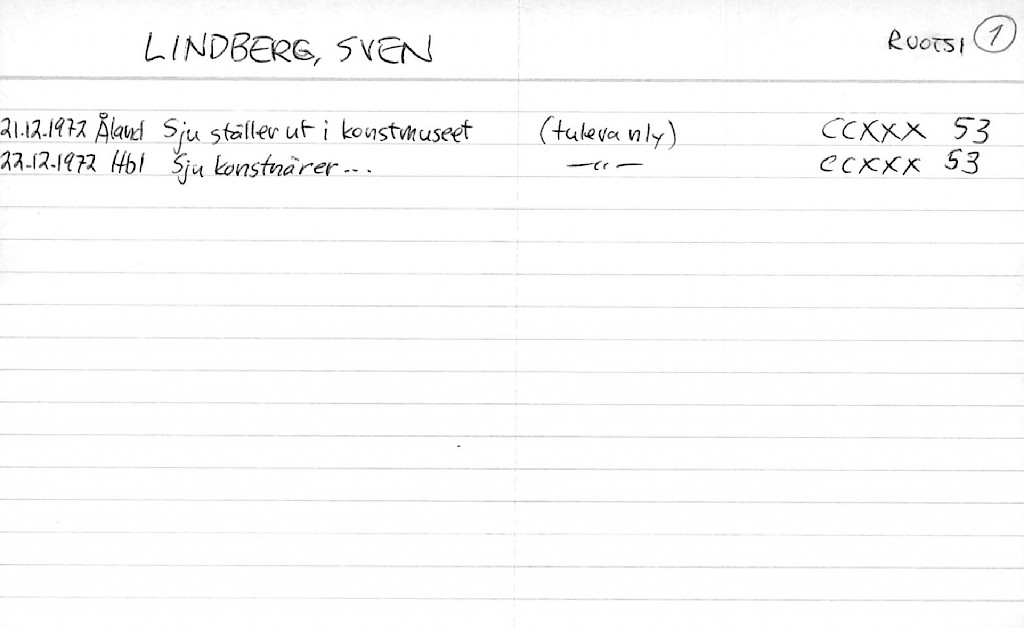 LINDBERG, SVEN RUOTSI 1
21.12.1972 Åland Sju ställer ut i konstmuseet (tuleva nly) CCXXX 53
22.12.1972 Hbl Sju konstnärer... —"— CCXXX 53